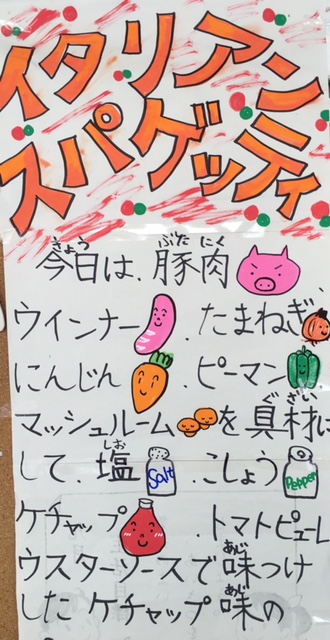 イタリアン
スパゲッティ
今日は、豚肉
きょう ぶた にく
ウインナー、たまねぎ、
にんじん、ピーマン
マッシュルームを具材に
ぐざい
して、塩 Salt、こしょう Pepper
しお
ケチャップ、トマトピューレ
ウスターソースで味つけ
あじ
したケチャップ味の
あじ